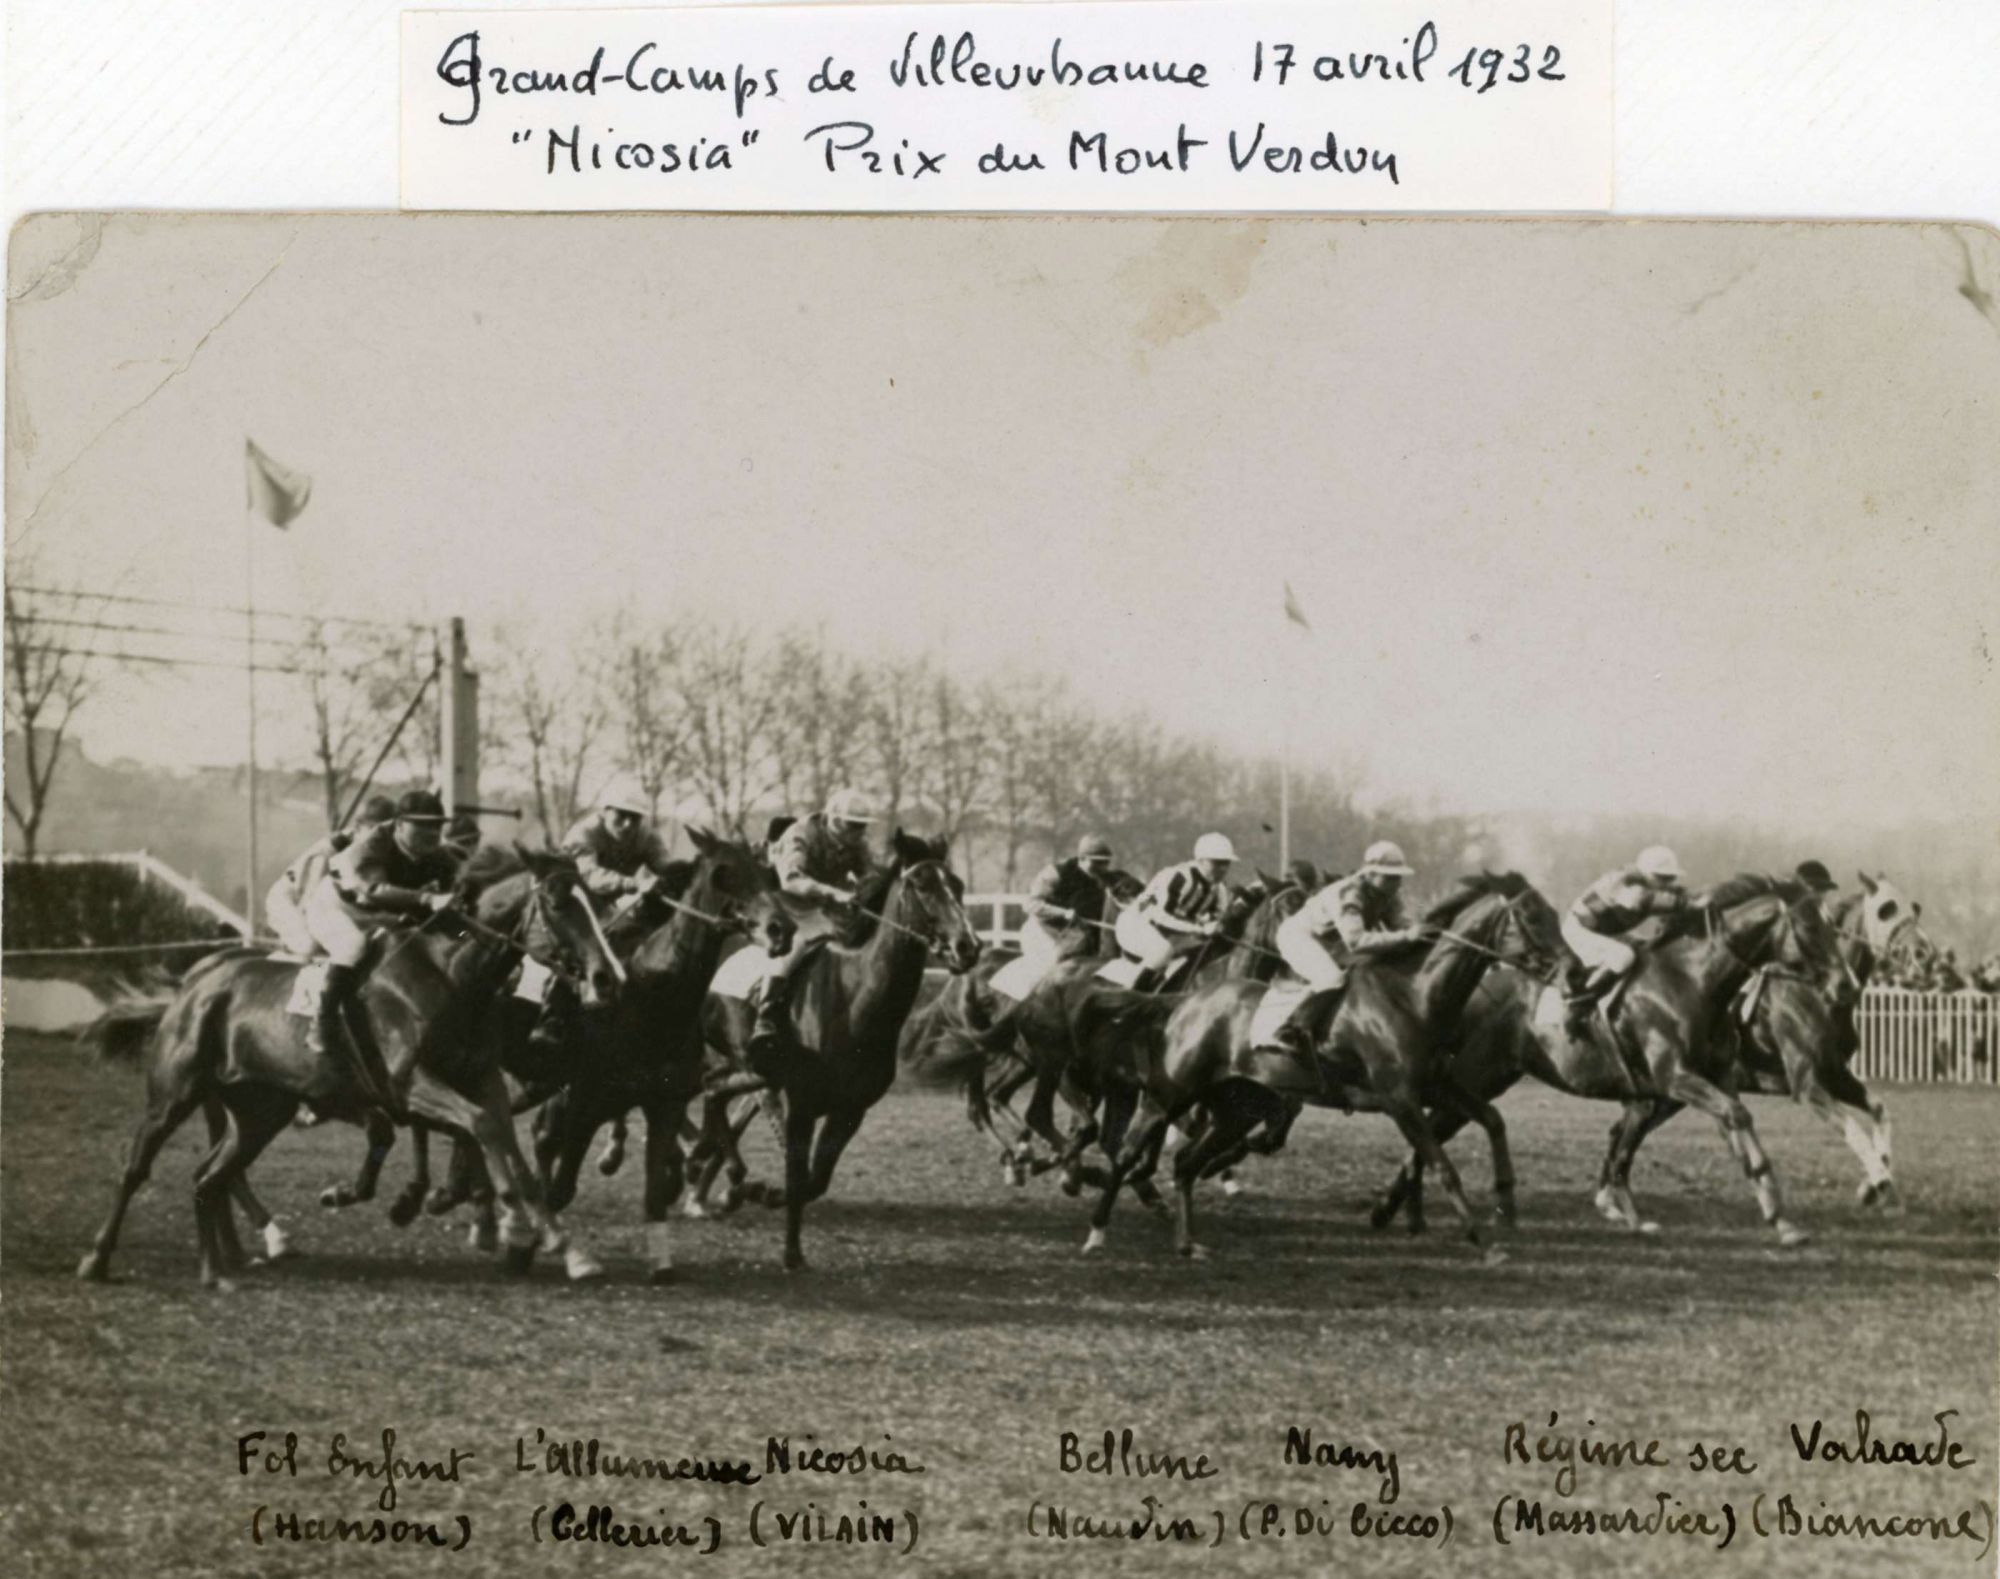 Grand-Camps de Villeurbanne 17 avril 1932
"Nicosia" Prix du Mont Verdun
Fol Enfant L'Allumeuse Nicosia Bellune Namy Régime sec Valrade
(Hanson) (Cellerier) (VILAIN) (Naudin) (P. Di Cicco) (Massardier) (Biancone)